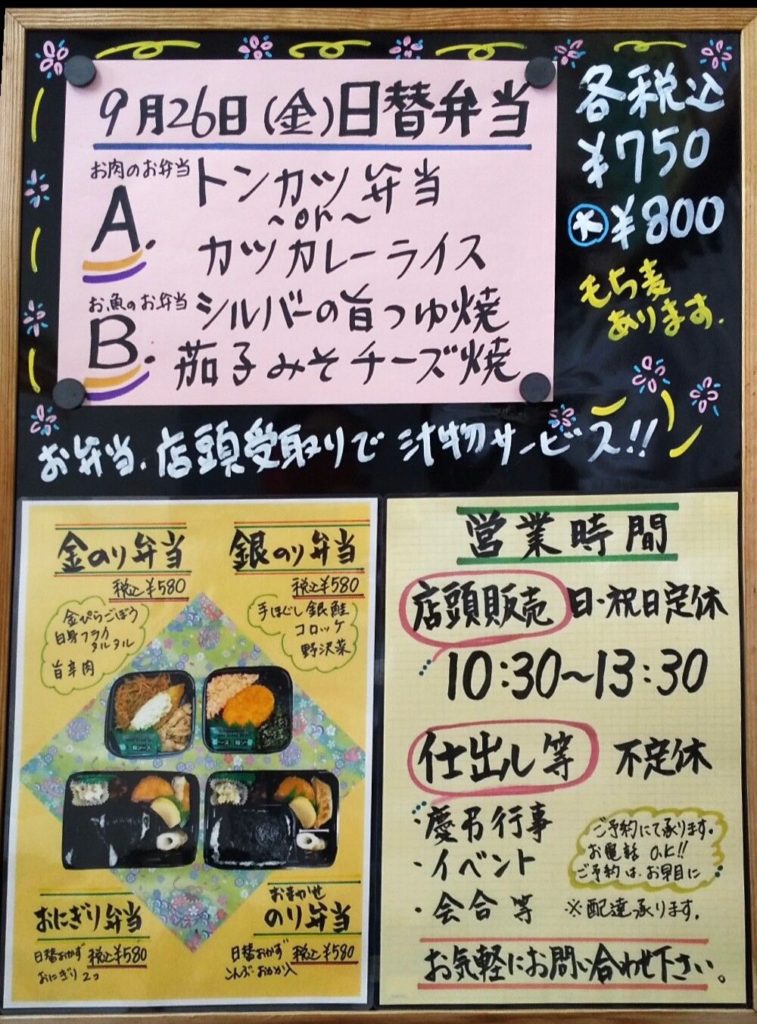 9月26日(金)日替弁当
お肉のお弁当
A.
トンカツ弁当
~or~
カツカレーライス
お魚のお弁当
B.
シルバーの旨つゆ焼
茄子みそチーズ焼
各税込
¥750
大 ¥800
もち麦
あります.
お弁当、店頭受取りで 汁物サービス!!
金のり弁当
税込¥580
金ぴらごぼう
白身フライ
タルタル
旨辛肉
銀のり弁当
税込¥580
手ほぐし銀鮭
コロッケ
野沢菜
おにぎり弁当
日替おかず 税込¥580
おにぎり2つ
おまかせ
のり弁当
日替おかず 税込¥580
こんぶ・おかか入
営業時間
店頭販売 日・祝日定休
10:30~13:30
仕出し等 不定休
・慶弔行事
・イベント
・会合等
ご予約にて承ります.
お電話 O.K!!
ご予約は、お早目に
※配達承ります.
お気軽にお問い合わせ下さい。